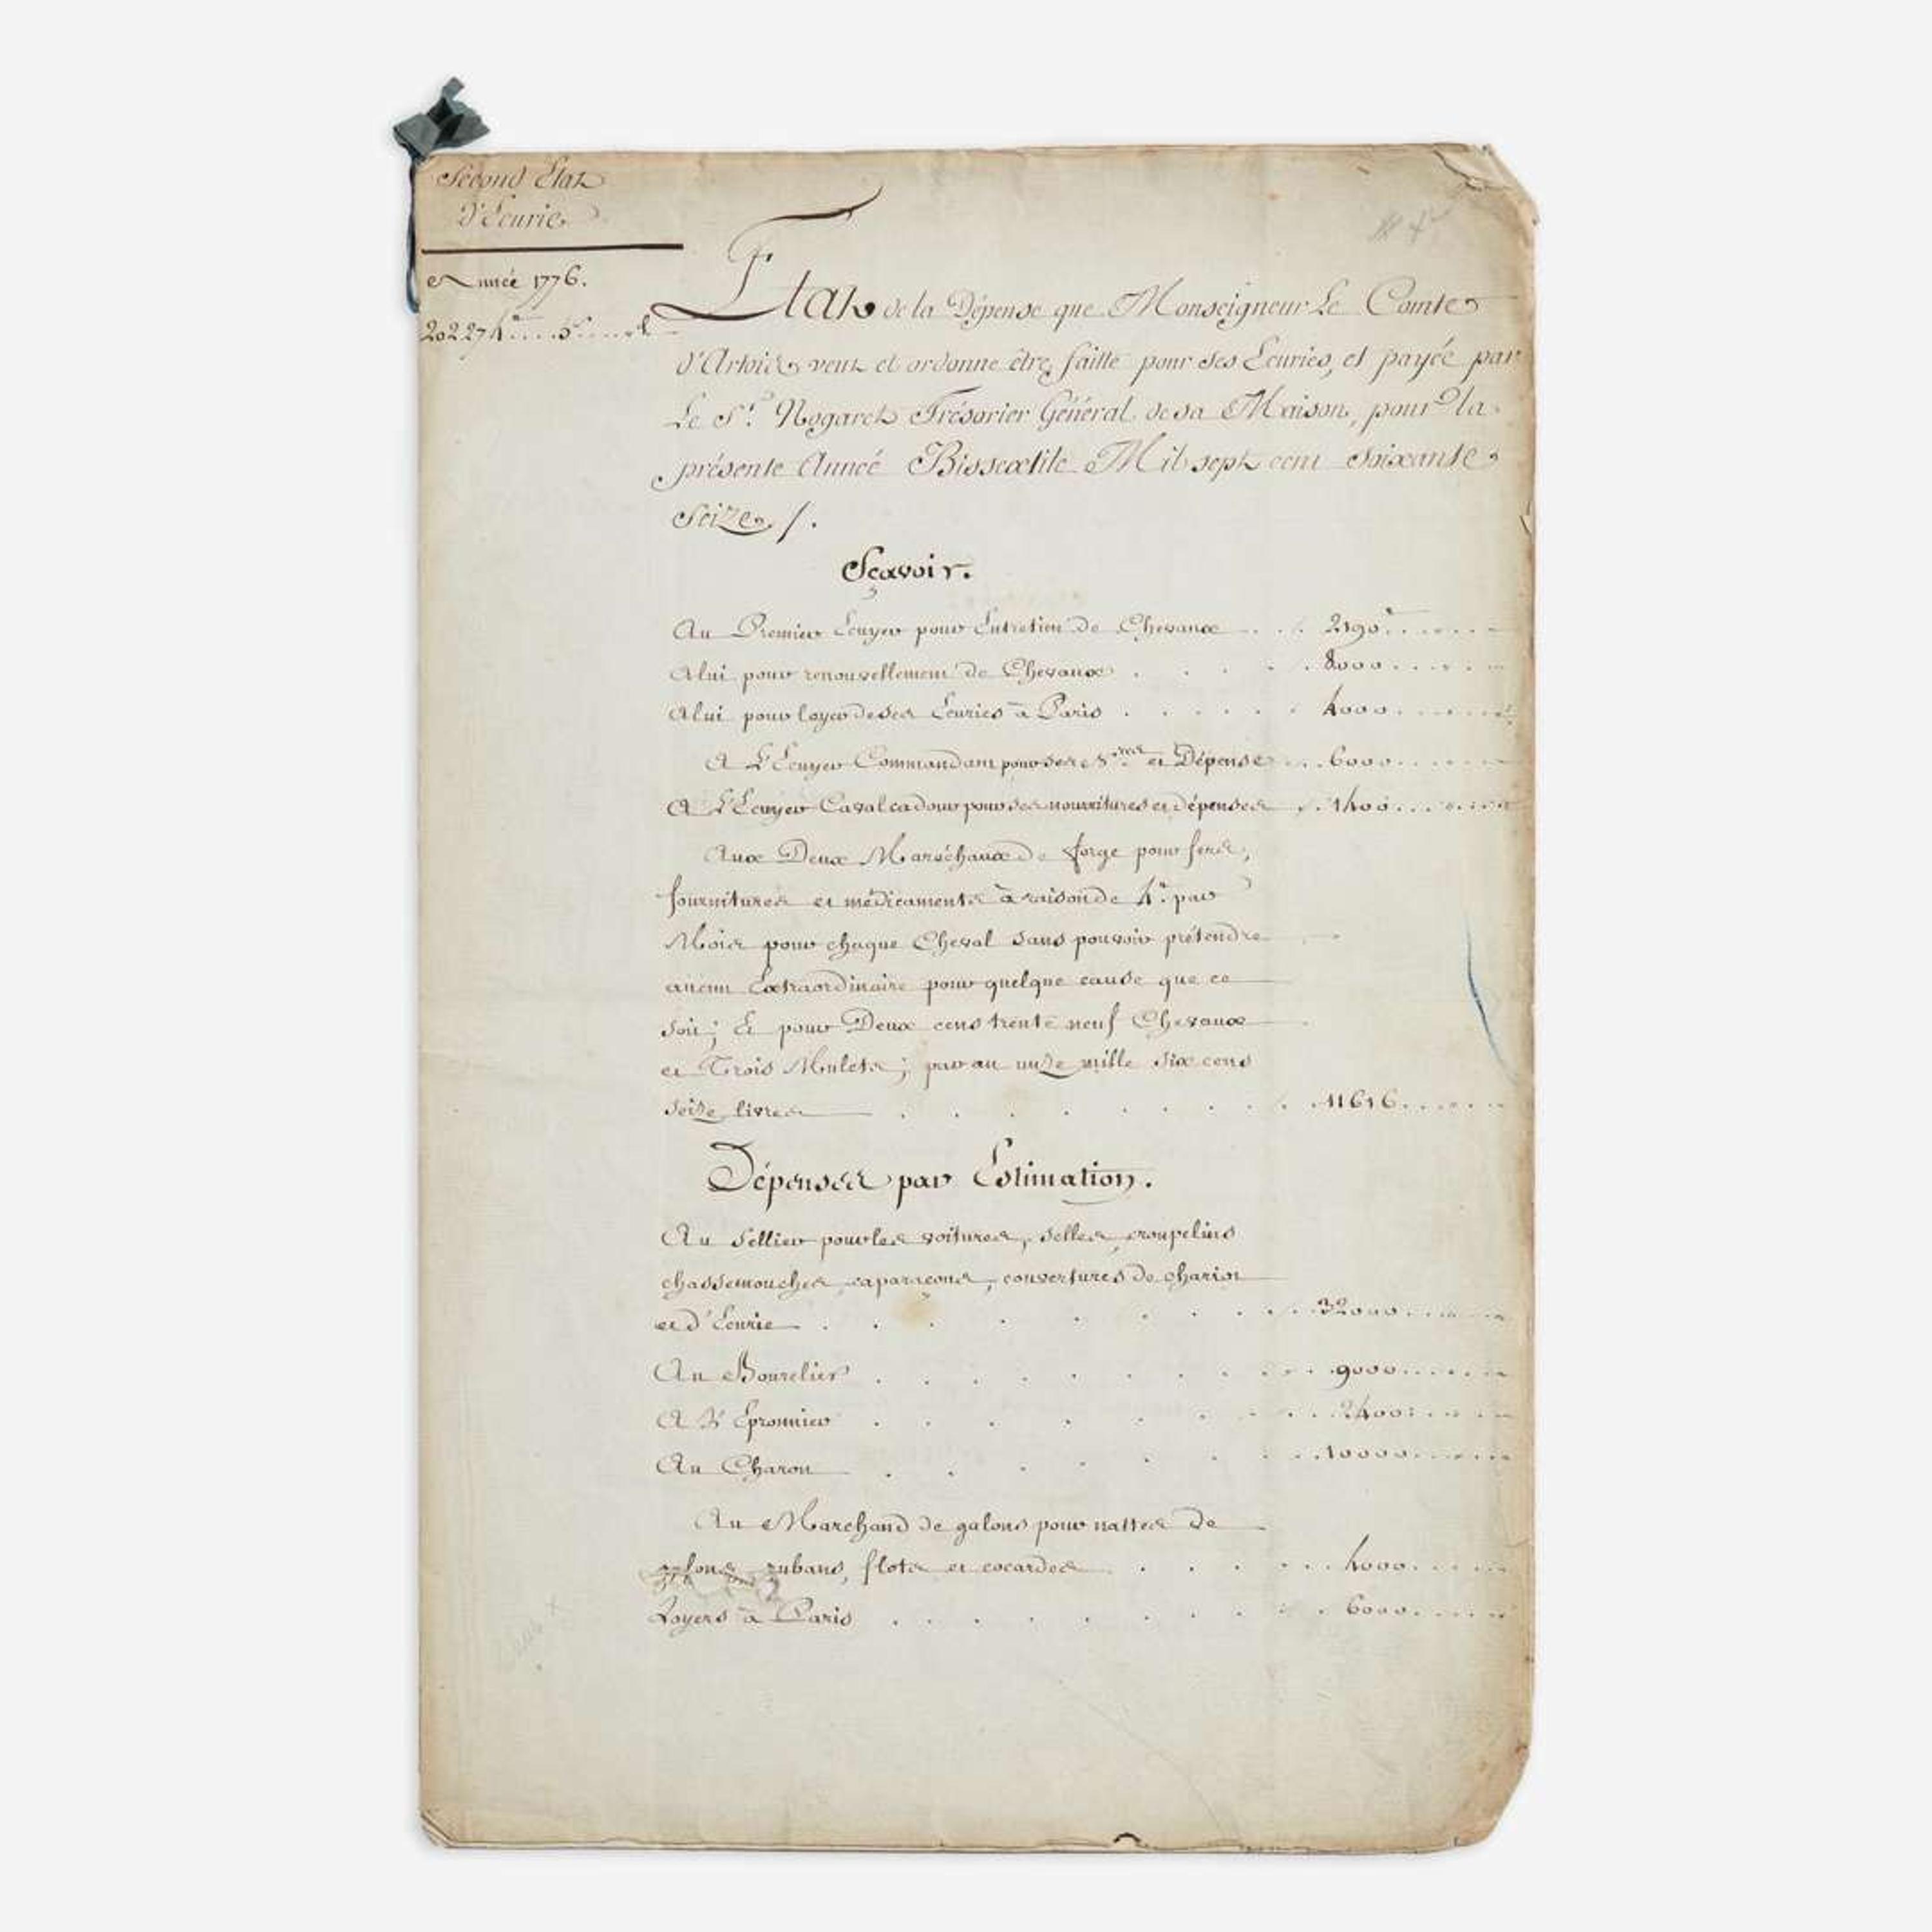 Second Etat
d'Ecurie
Année 1776.
Etat de la Dépense que Monseigneur Le Comte
d'Artois veut et ordonne être faitte pour ses Ecuries, et payée par
Le Sr. Nogaret Trésorier Général de sa Maison, pour la
présente Année Bissextile Mil sept cent soixante
Seize /.
Sçavoir.
Au Premier Ecuyer pour Entretien de Chevaux . . . 2190# . . . . .
A lui pour renouvellement de Chevaux . . . . . 8000 . . . . .
A lui pour loyer de ses Ecuries à Paris . . . . . . 4000 . . . . .
A L'Ecuyer Commandant pour ses et Dépense . . . 6000 . . . . .
A L'Ecuyer Cavalcadour pour ses nourritures et dépenses . . 1400 . . . . .
Aux Deux Maréchaux de forge pour fers,
fournitures et médicaments à raison de 4#. par
Mois pour chaque Cheval sans pouvoir prétendre
aucun Extraordinaire pour quelque cause que ce
soit; Et pour Deux cens trente neuf Chevaux
et Trois Mulets; par an unze mille six cens
seize livres . . . . . . . . . 11616 . . . . .
Dépenses par Estimation.
Au Sellier pour les voitures, selles, croupelins
chassemouches, caparaçons, couvertures de chariot
et d'Ecurie . . . . . . . . . 32000 . . . . .
Au Bourelier . . . . . . . . . 9000 . . . . .
A L'Epronnier . . . . . . . . 2400 . . . . .
Au Charon . . . . . . . . 10000 . . . . .
Au Marchand de galons pour nattes de
galons rubans, flots et cocardes . . . . . 4000 . . . . .
Loyers à Paris . . . . . . . . . 6000 . . . . .